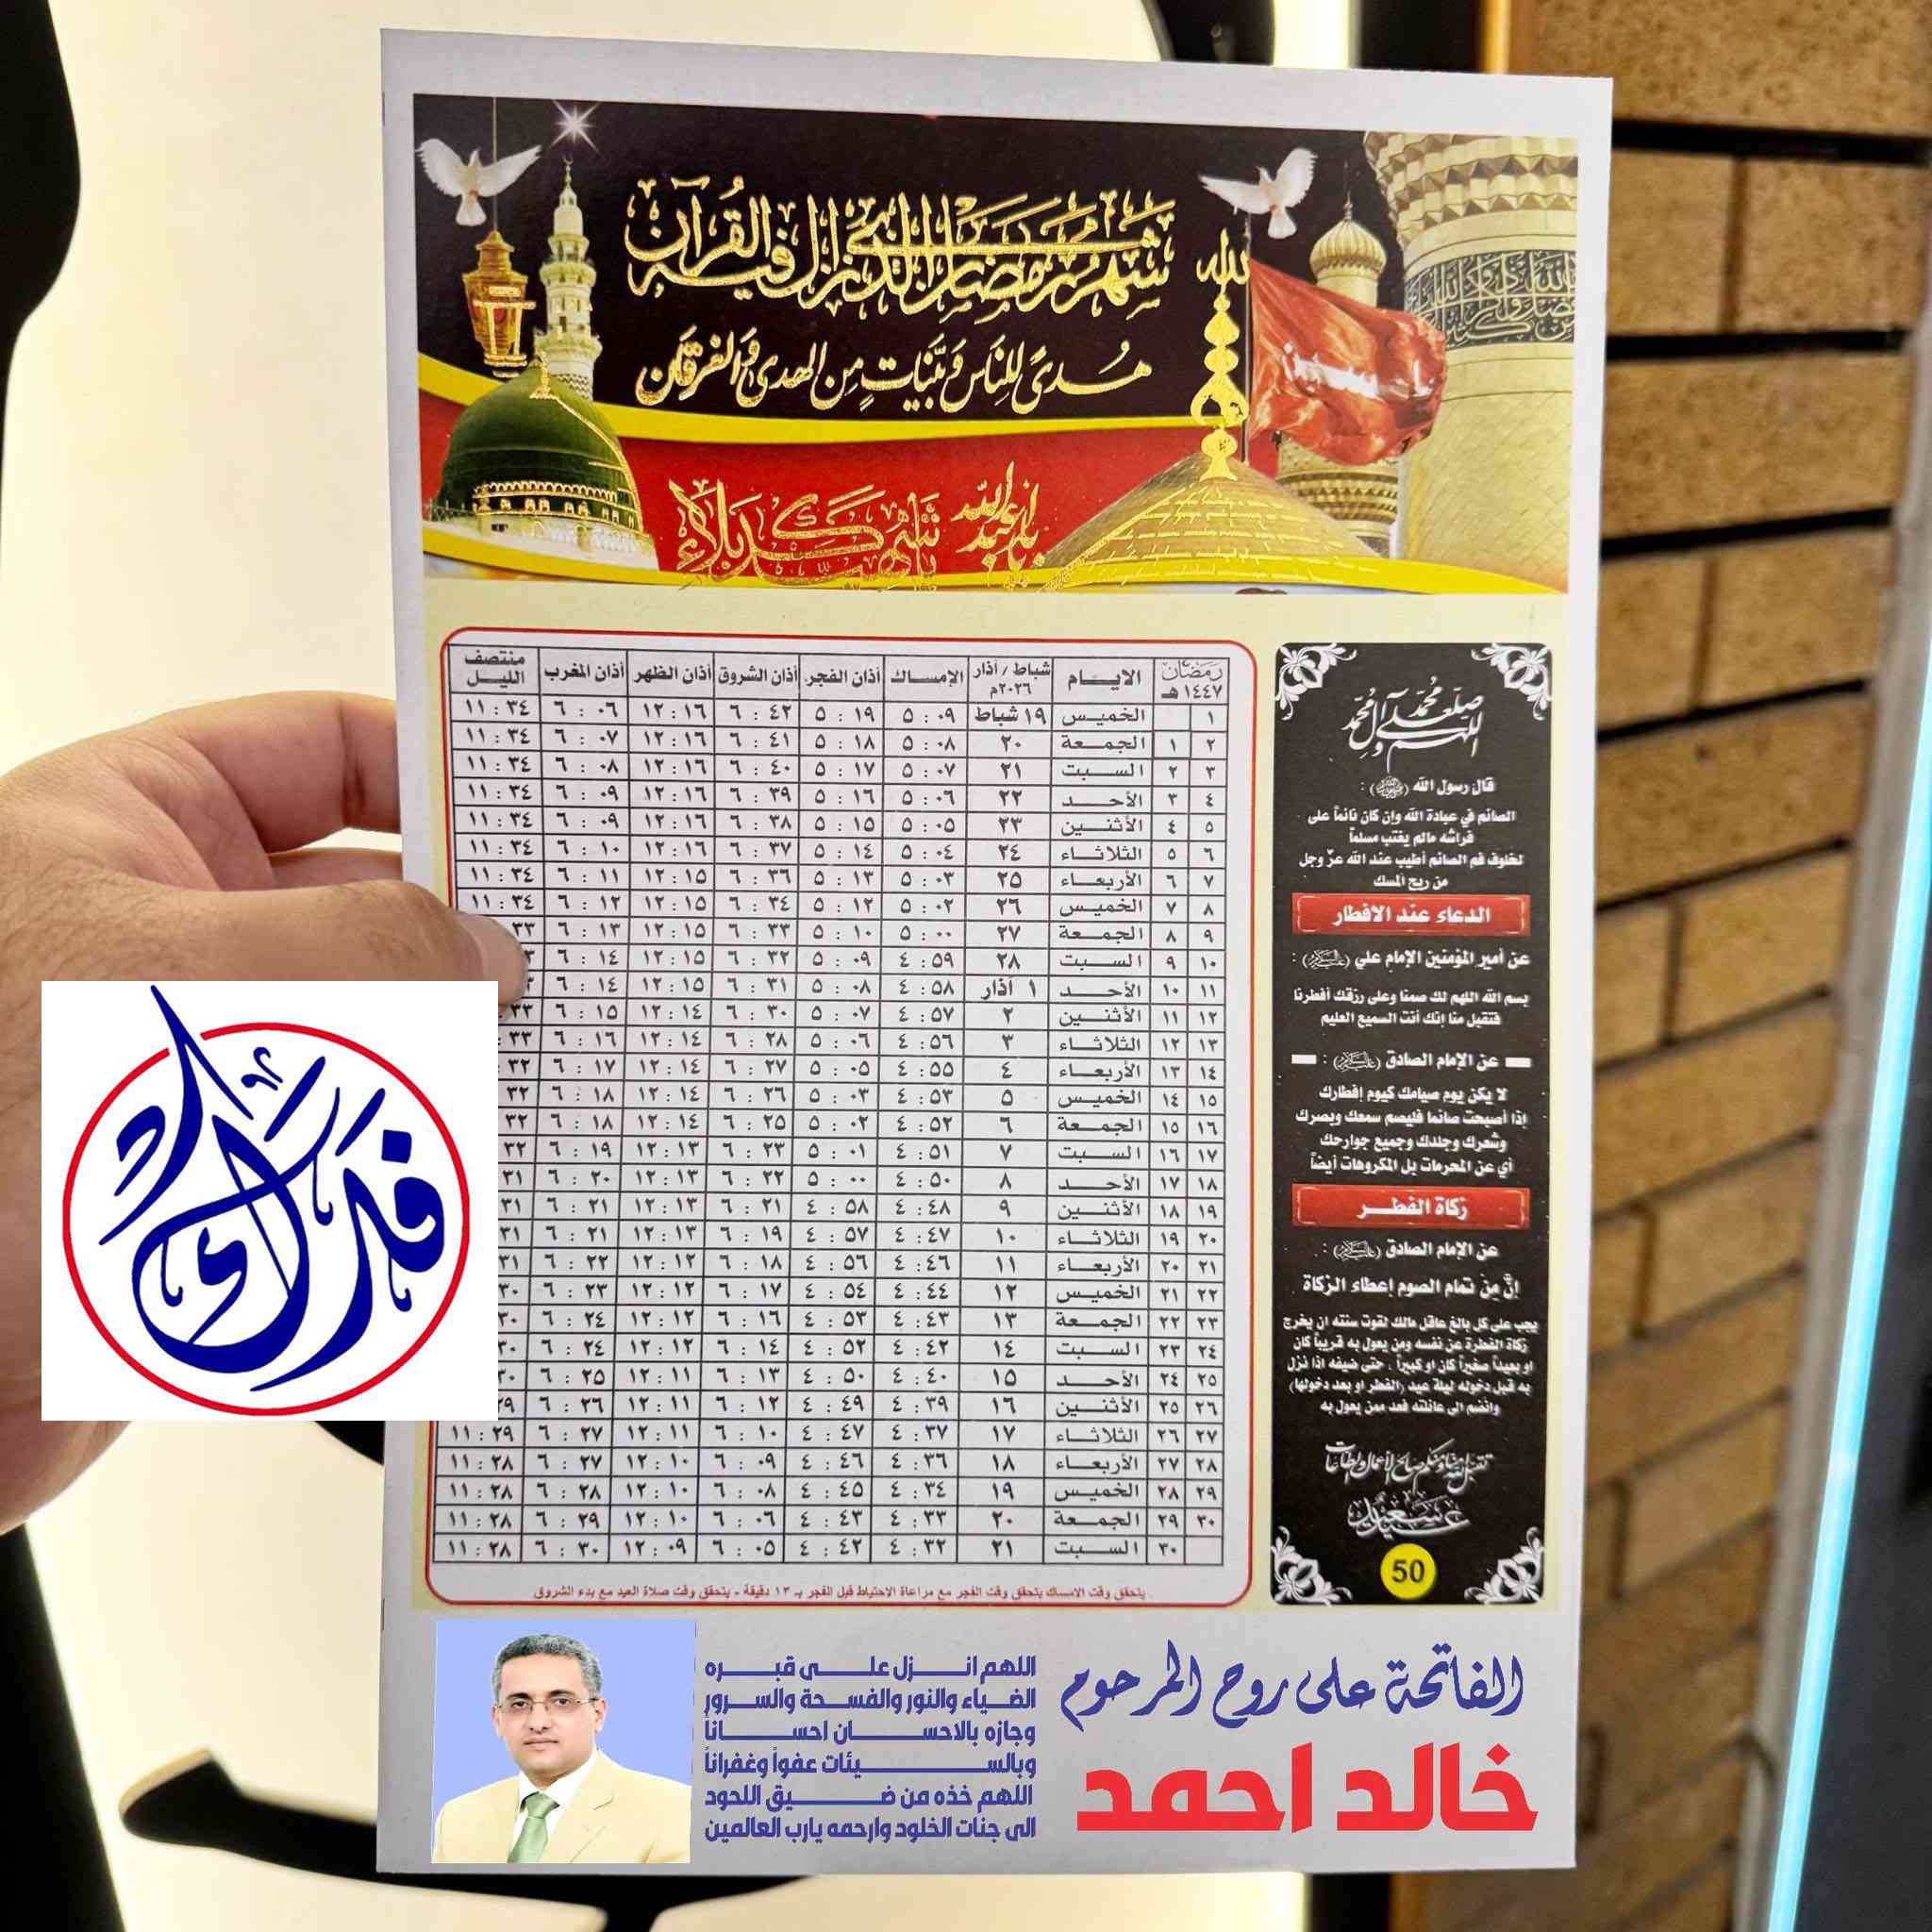 شهر رمضان الذي أنزل فيه القرآن
هُدىً لِلنَاس وَبَيِّنَاتٍ مِن الهدى وَالفرقان
يا أبا عبد الله
يا شهيد كربلاء
رمضان ١٤٤٧ هـ | الايـــام | شباط / آذار ٢٠٢٦م | الإمساك | أذان الفجر | أذان الشروق | أذان الظهر | أذان المغرب | منتصف الليل
١ | | الخميس | ١٩ شباط | ٥ : ٠٩ | ٥ : ١٩ | ٦ : ٤٢ | ١٢ : ١٦ | ٦ : ٠٦ | ١١ : ٣٤
٢ | ١ | الجمعة | ٢٠ | ٥ : ٠٨ | ٥ : ١٨ | ٦ : ٤١ | ١٢ : ١٦ | ٦ : ٠٧ | ١١ : ٣٤
٣ | ٢ | السبت | ٢١ | ٥ : ٠٧ | ٥ : ١٧ | ٦ : ٤٠ | ١٢ : ١٦ | ٦ : ٠٨ | ١١ : ٣٤
٤ | ٣ | الأحد | ٢٢ | ٥ : ٠٦ | ٥ : ١٦ | ٦ : ٣٩ | ١٢ : ١٦ | ٦ : ٠٩ | ١١ : ٣٤
٥ | ٤ | الأثنين | ٢٣ | ٥ : ٠٥ | ٥ : ١٥ | ٦ : ٣٨ | ١٢ : ١٦ | ٦ : ٠٩ | ١١ : ٣٤
٦ | ٥ | الثلاثاء | ٢٤ | ٥ : ٠٤ | ٥ : ١٤ | ٦ : ٣٧ | ١٢ : ١٦ | ٦ : ١٠ | ١١ : ٣٤
٧ | ٦ | الأربعاء | ٢٥ | ٥ : ٠٣ | ٥ : ١٣ | ٦ : ٣٦ | ١٢ : ١٥ | ٦ : ١١ | ١١ : ٣٤
٨ | ٧ | الخميس | ٢٦ | ٥ : ٠٢ | ٥ : ١٢ | ٦ : ٣٤ | ١٢ : ١٥ | ٦ : ١٢ | ١١ : ٣٤
٩ | ٨ | الجمعة | ٢٧ | ٥ : ٠٠ | ٥ : ١٠ | ٦ : ٣٣ | ١٢ : ١٥ | ٦ : ١٣ | ٣٣
١٠ | ٩ | السبت | ٢٨ | ٤ : ٥٩ | ٥ : ٠٩ | ٦ : ٣٢ | ١٢ : ١٥ | ٦ : ١٤ | ٣
١١ | ١٠ | الأحد | ١ آذار | ٤ : ٥٨ | ٥ : ٠٨ | ٦ : ٣١ | ١٢ : ١٥ | ٦ : ١٤ | ٣
١٢ | ١١ | الأثنين | ٢ | ٤ : ٥٧ | ٥ : ٠٧ | ٦ : ٣٠ | ١٢ : ١٤ | ٦ : ١٥ | ٣٣
١٣ | ١٢ | الثلاثاء | ٣ | ٤ : ٥٦ | ٥ : ٠٦ | ٦ : ٢٨ | ١٢ : ١٤ | ٦ : ١٦ | ٣٣
١٤ | ١٣ | الأربعاء | ٤ | ٤ : ٥٥ | ٥ : ٠٥ | ٦ : ٢٧ | ١٢ : ١٤ | ٦ : ١٧ | ٣٢
١٥ | ١٤ | الخميس | ٥ | ٤ : ٥٣ | ٥ : ٠٣ | ٦ : ٢٦ | ١٢ : ١٤ | ٦ : ١٨ | ٣٢
١٦ | ١٥ | الجمعة | ٦ | ٤ : ٥٢ | ٥ : ٠٢ | ٦ : ٢٥ | ١٢ : ١٤ | ٦ : ١٨ | ٣٢
١٧ | ١٦ | السبت | ٧ | ٤ : ٥١ | ٥ : ٠١ | ٦ : ٢٣ | ١٢ : ١٣ | ٦ : ١٩ | ٣٢
١٨ | ١٧ | الأحد | ٨ | ٤ : ٥٠ | ٥ : ٠٠ | ٦ : ٢٢ | ١٢ : ١٣ | ٦ : ٢٠ | ٣١
١٩ | ١٨ | الأثنين | ٩ | ٤ : ٤٨ | ٤ : ٥٨ | ٦ : ٢١ | ١٢ : ١٣ | ٦ : ٢١ | ٣١
٢٠ | ١٩ | الثلاثاء | ١٠ | ٤ : ٤٧ | ٤ : ٥٧ | ٦ : ١٩ | ١٢ : ١٣ | ٦ : ٢١ | ٣١
٢١ | ٢٠ | الأربعاء | ١١ | ٤ : ٤٦ | ٤ : ٥٦ | ٦ : ١٨ | ١٢ : ١٢ | ٦ : ٢٢ | ٣١
٢٢ | ٢١ | الخميس | ١٢ | ٤ : ٤٤ | ٤ : ٥٤ | ٦ : ١٧ | ١٢ : ١٢ | ٦ : ٢٣ | ٣٠
٢٣ | ٢٢ | الجمعة | ١٣ | ٤ : ٤٣ | ٤ : ٥٣ | ٦ : ١٦ | ١٢ : ١٢ | ٦ : ٢٤ | ٣٠
٢٤ | ٢٣ | السبت | ١٤ | ٤ : ٤٢ | ٤ : ٥٢ | ٦ : ١٤ | ١٢ : ١٢ | ٦ : ٢٤ | ٣٠
٢٥ | ٢٤ | الأحد | ١٥ | ٤ : ٤٠ | ٤ : ٥٠ | ٦ : ١٣ | ١٢ : ١١ | ٦ : ٢٥ | ٣٠
٢٦ | ٢٥ | الأثنين | ١٦ | ٤ : ٣٩ | ٤ : ٤٩ | ٦ : ١٢ | ١٢ : ١١ | ٦ : ٢٦ | ٢٩
٢٧ | ٢٦ | الثلاثاء | ١٧ | ٤ : ٣٧ | ٤ : ٤٧ | ٦ : ١٠ | ١٢ : ١١ | ٦ : ٢٧ | ١١ : ٢٩
٢٨ | ٢٧ | الأربعاء | ١٨ | ٤ : ٣٦ | ٤ : ٤٦ | ٦ : ٠٩ | ١٢ : ١٠ | ٦ : ٢٧ | ١١ : ٢٨
٢٩ | ٢٨ | الخميس | ١٩ | ٤ : ٣٤ | ٤ : ٤٥ | ٦ : ٠٨ | ١٢ : ١٠ | ٦ : ٢٨ | ١١ : ٢٨
٣٠ | ٢٩ | الجمعة | ٢٠ | ٤ : ٣٣ | ٤ : ٤٣ | ٦ : ٠٦ | ١٢ : ١٠ | ٦ : ٢٩ | ١١ : ٢٨
| ٣٠ | السبت | ٢١ | ٤ : ٣٢ | ٤ : ٤٢ | ٦ : ٠٥ | ١٢ : ٠٩ | ٦ : ٣٠ | ١١ : ٢٨
يتحقق وقت الامساك بتحقق وقت الفجر مع مراعاة الاحتياط قبل الفجر بـ ١٣ دقيقة - يتحقق وقت صلاة العيد مع بدء الشروق
اللهم صل على محمد وآل محمد
قال رسول الله (ﷺ) :
الصائم في عبادة الله وإن كان نائماً على
فراشه مالم يغتب مسلماً
لخلوف فم الصائم أطيب عند الله عزّ وجل
من ريح المسك
الدعاء عند الافطار
عن أمير المؤمنين الإمام علي (عليه السلام) :
بسم الله اللهم لك صمنا وعلى رزقك أفطرنا
فتقبل منا إنك أنت السميع العليم
عن الإمام الصادق (عليه السلام) :
لا يكن يوم صيامك كيوم إفطارك
إذا أصبحت صائما فليصم سمعك وبصرك
وشعرك وجلدك وجميع جوارحك
أي عن المحرمات بل المكروهات أيضاً
زكاة الفطر
عن الإمام الصادق (عليه السلام) :
إنَّ مِنْ تمام الصوم إعطاء الزكاة
يجب على كل بالغ عاقل مالك لقوت سنته ان يخرج
زكاة الفطرة عن نفسه ومن يعول به قريباً كان
او بعيداً صغيراً كان او كبيراً . حتى ضيفه اذا نزل
به قبل دخوله ليلة عيد (الفطر او بعد دخولها)
وانضم الى عائلته فعد ممن يعول به
تقبل الله منا ومنكم صالح الأعمال والطاعات
عيد سعيد
50
فدك
الفاتحة على روح المرحوم
خالد احمد
اللهم انـــزل علـــى قبـــره
الضياء والنور والفسحة والسرور
وجازه بالاحسـان احسـاناً
وبالسـيئات عفواً وغفراناً
اللهم خذه من ضـيق اللحود
الى جنات الخلود وارحمه يارب العالمين